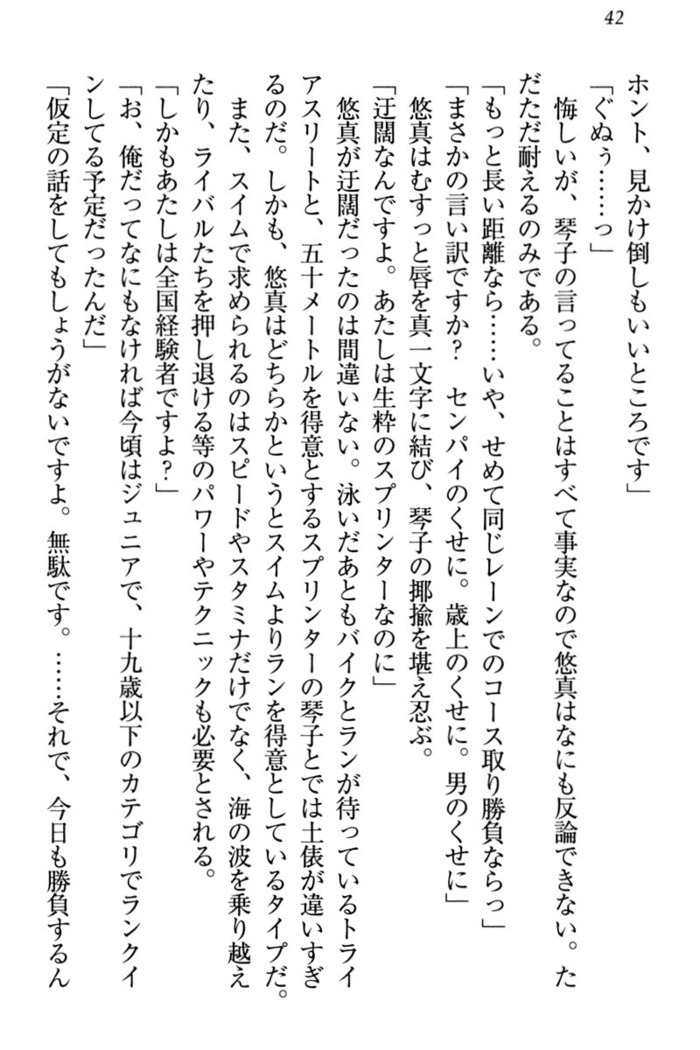 42
ホント、見かけ倒しもいいところです」
「ぐぬぅ……っ」
悔しいが、琴子の言ってることはすべて事実なので悠真はなにも反論できない。た
だただ耐えるのみである。
「もっと長い距離なら……いや、せめて同じレーンでのコース取り勝負ならっ」
「まさかの言い訳ですか？　センパイのくせに。歳上のくせに。男のくせに」
悠真はむすっと唇を真一文字に結び、琴子の揶揄を堪え忍ぶ。
「迂闊なんですよ。あたしは生粋のスプリンターなのに」
悠真が迂闊だったのは間違いない。泳いだあともバイクとランが待っているトライ
アスリートと、五十メートルを得意とするスプリンターの琴子とでは土俵が違いすぎ
るのだ。しかも、悠真はどちらかというとスイムよりランを得意としているタイプだ。
また、スイムで求められるのはスピードやスタミナだけでなく、海の波を乗り越え
たり、ライバルたちを押し退ける等のパワーやテクニックも必要とされる。
「しかもあたしは全国経験者ですよ？」
「お、俺だってなにもなければ今頃はジュニアで、十九歳以下のカテゴリでランクイ
ンしてる予定だったんだ」
「仮定の話をしてもしょうがないですよ。無駄です。……それで、今日も勝負するん